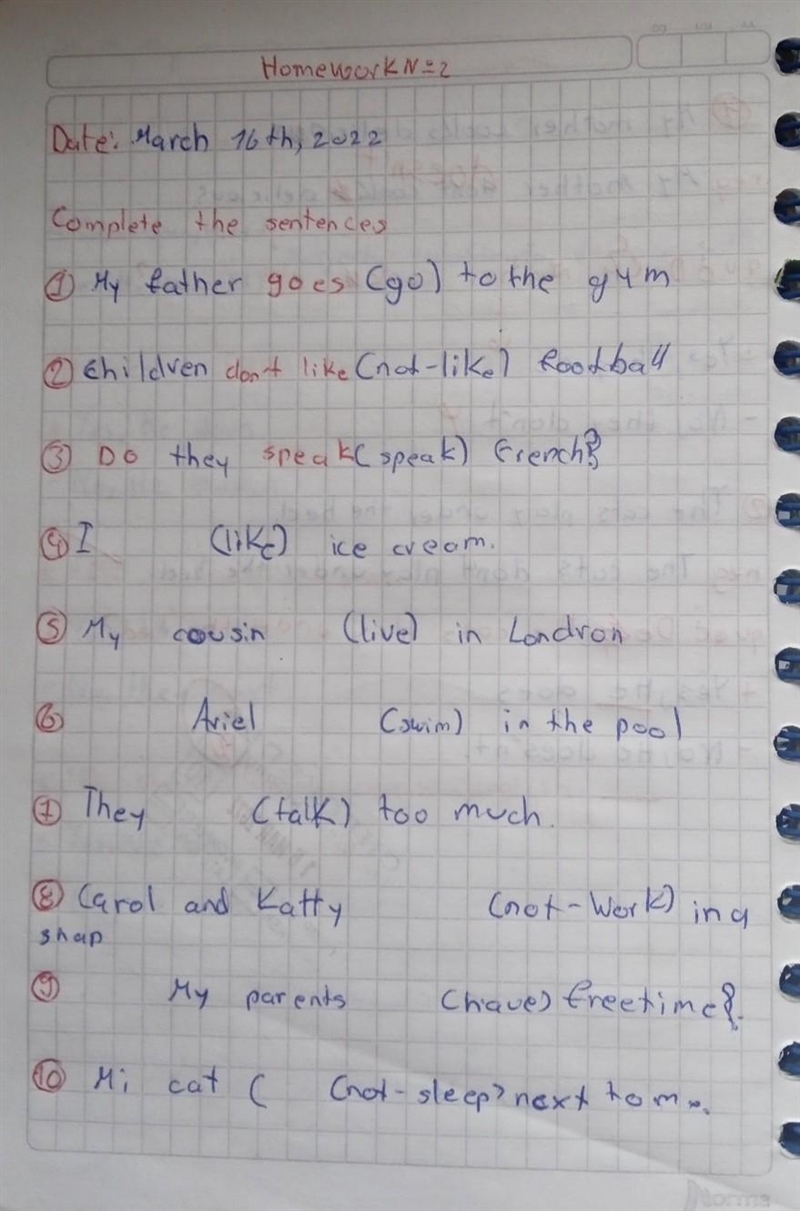 Homework N=2
Date: March 16th, 2022
Complete the sentences
① My father goes (go) to the gym
② Children don't like (not-like) football
③ Do they speak (speak) French?
④ I (like) ice cream.
⑤ My cousin (live) in Londron
⑥ Ariel (swim) in the pool
⑦ They (talk) too much.
⑧ Carol and Katty (not-work) in a
shap
⑨ My parents (have) freetime?
⑩ Mi cat ( (not-sleep) next to me.